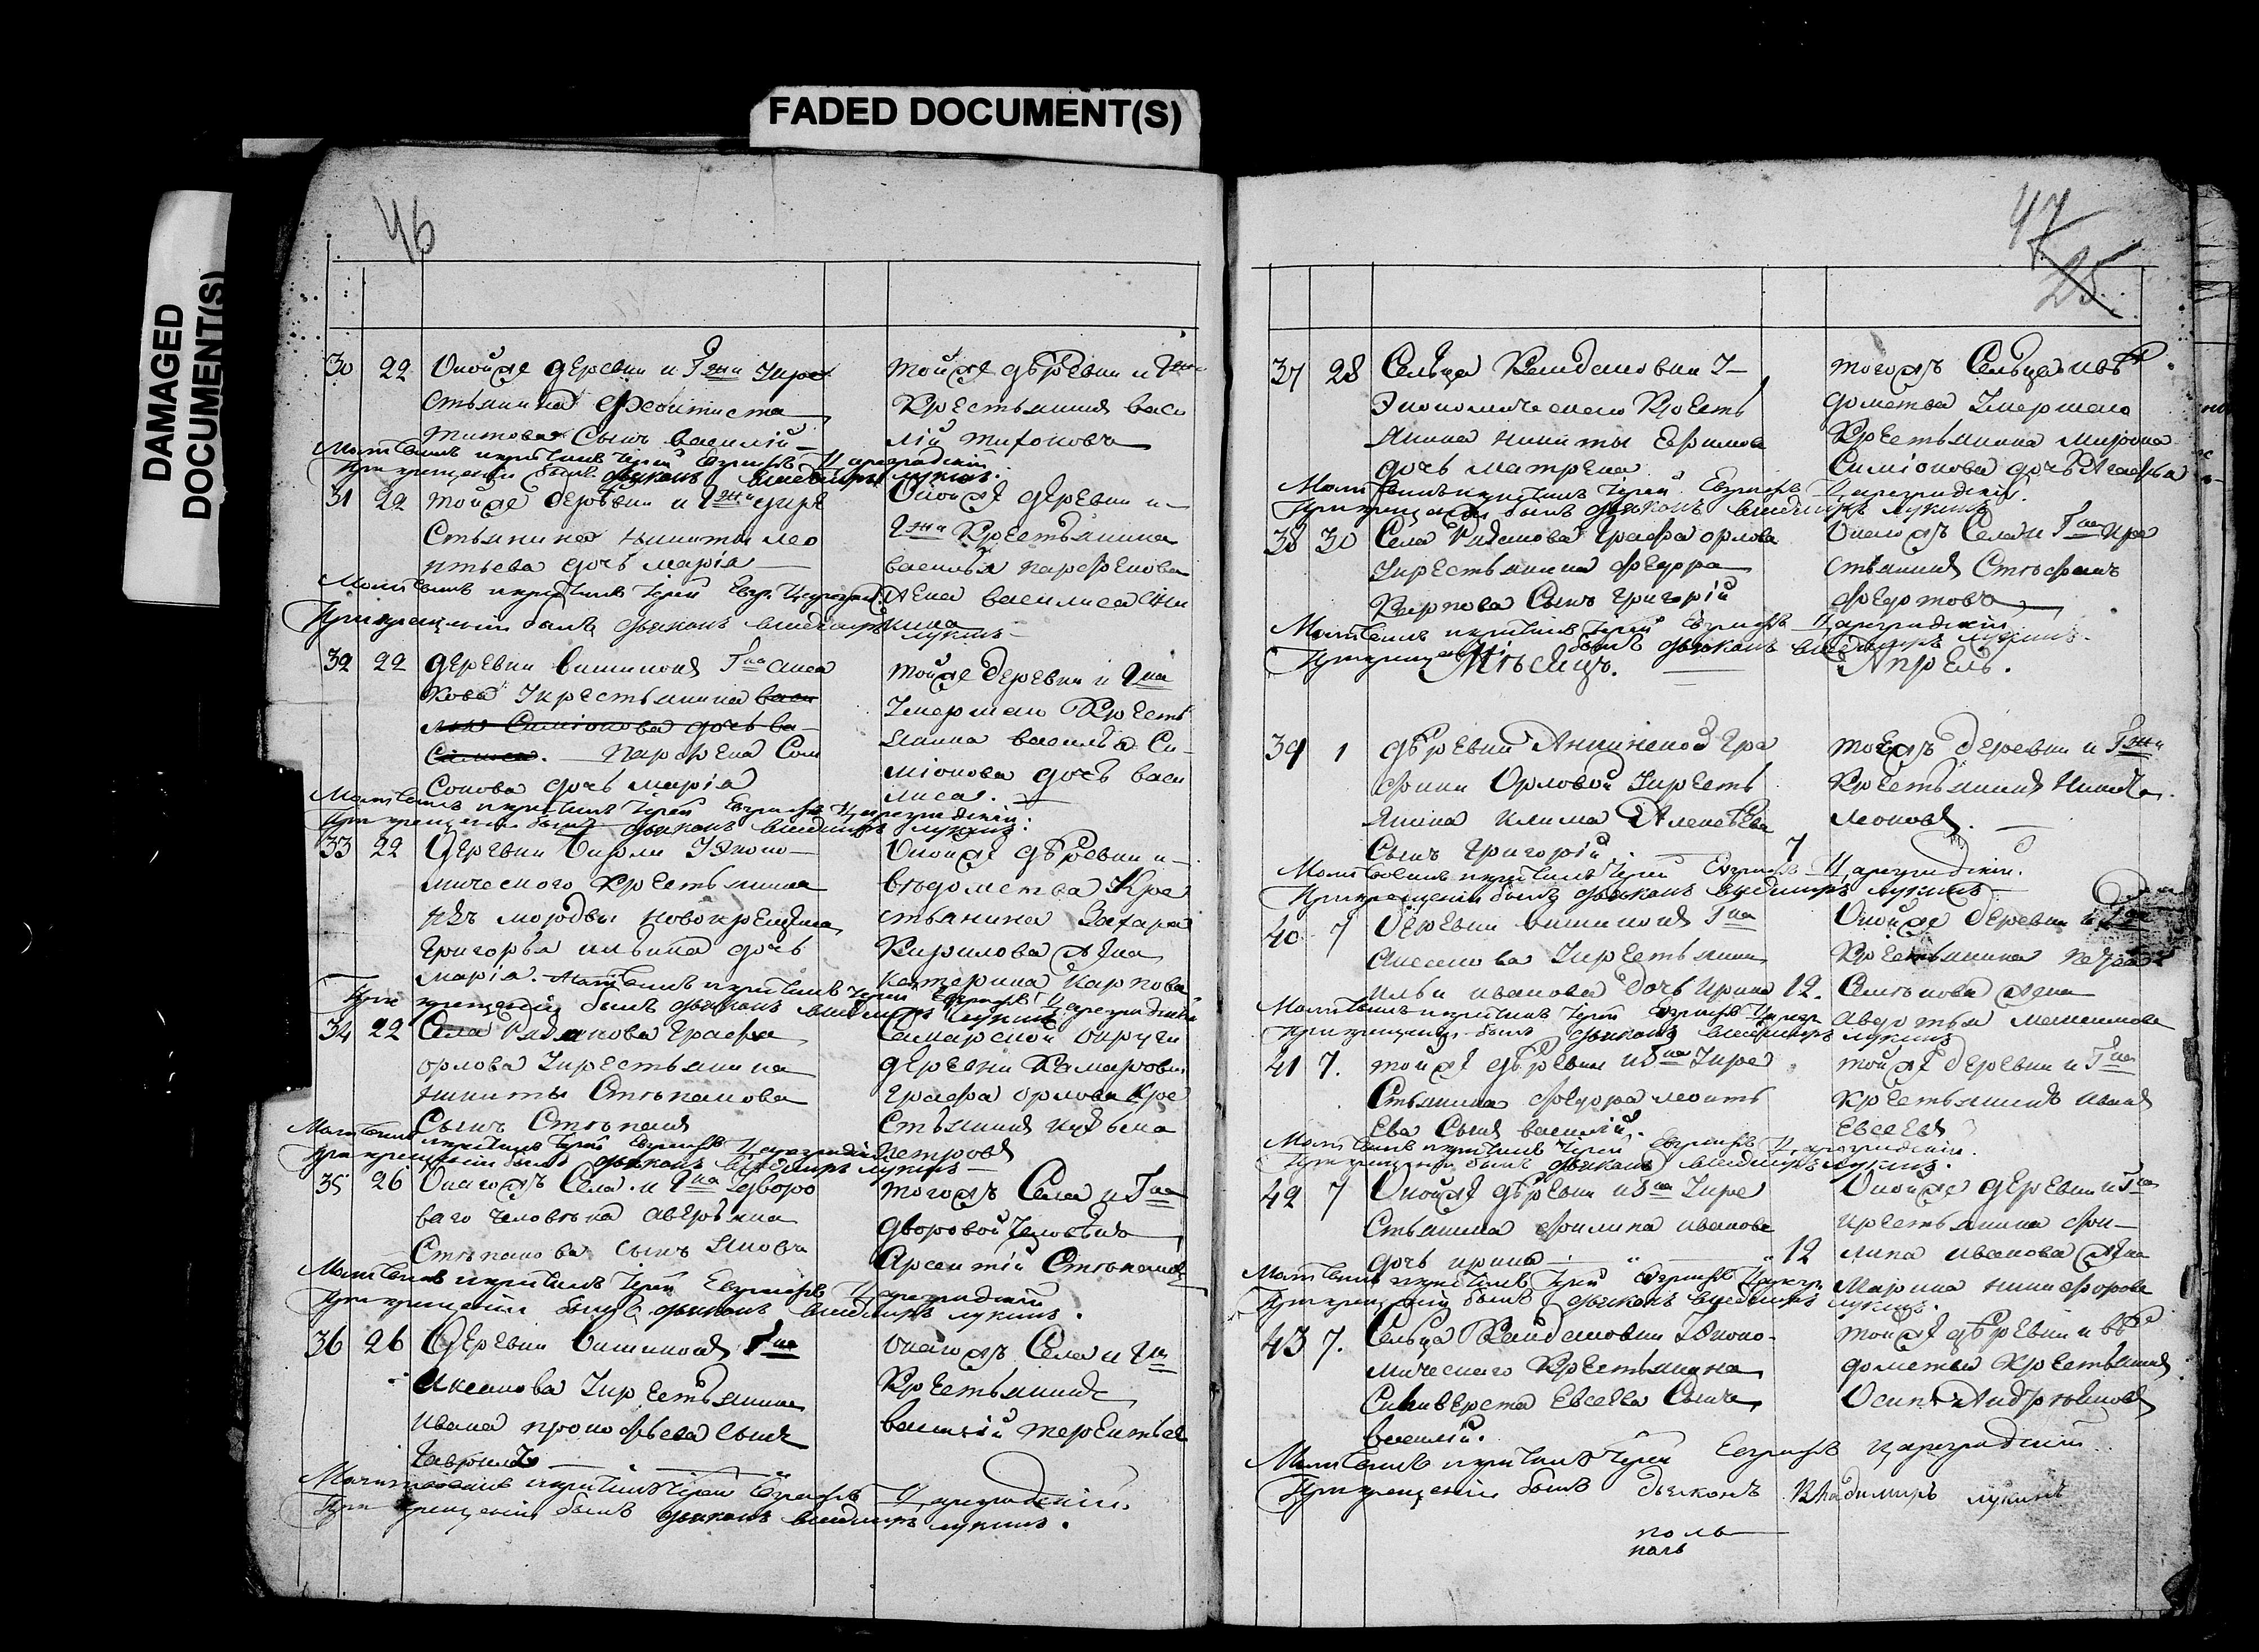 FADED DOCUMENT(S)
DAMAGED
DOCUMENT(S)
46
30 22 Оной же деревни и Гжи Укре
стьянина Феоктиста
Титова Сынъ василій
той же деревни и Гжи
Крестьянинъ васи
лій тихоновъ
Молитвилъ и крстилъ Іерей Евграфъ Цареградскій
При крещеніи былъ дьяконъ владимиръ лукинъ.
31 22 той же деревни и Гжи укре
стьянина никиты лео
нтьева дочь марія
Оной же деревни и
Гжи Крестьянина
василья парфенова
жена василиса
Молитвилъ и крстилъ Іерей Евгр. Цареград.
При крещеніи былъ дьяконъ владимиръ лукинъ
32 22 деревни Гна акса
кова Укрестьянина васи
лья Симіонова дочь ва
силиса. парфена Сам
сонова дочь марія
той же деревни и Гна
Умершаго Кресть
янина василья Си
міонова дочь васи
лиса.
Молитвилъ и крстилъ Іерей Евграфъ Цареградскій
При крещеніи былъ дьяконъ владимиръ лукинъ.
33 22 Деревни Уэконо
мическаго Крестьянина
изъ мордвы новокрещена
Григорья ильина дочь
марія.
Оной же деревни и
вѣдомства Кре
стьянина Захара
Кирилова жена
катерина Карпова
Молитвилъ и крстилъ Іерей Евграфъ Цареградскій
При крещеніи былъ дьяконъ владимиръ лукинъ
34 22 Села Графа
орлова Укрестьянина
никиты Стѣпанова
Сынъ Стѣпанъ
Самарской округи
деревни
Графа орлова Кре
стьянинъ кузьма
петровъ
Молитвилъ и крстилъ Іерей Евграфъ Цареградскій
При крещеніи былъ дьяконъ владимиръ лукинъ
35 26 Онагожъ Села и Гна Удворо
ваго человѣка аверьяна
Стѣпанова сынъ яковъ
тогожъ Села и Гна
дворовой человѣкъ
Арсентій Стѣпановъ
Молитвилъ и крстилъ Іерей Евграфъ Цареградскій
При крещеніи былъ дьяконъ владимиръ лукинъ.
36 26 Деревни Гна
Аксакова Укрестьянина
ивана прокофьева сынъ
Гаврила
онагожъ Села и Гна
Крестьянинъ
василій терентьевъ
Молитвилъ и крстилъ Іерей Евграфъ Цареградскій.
При крещеніи былъ дьяконъ владимиръ лукинъ.
47
25
37 28 Сельца У
Экономическаго Кресть
янина никиты Ефимова
дочь матрена
тогожъ Сельца ивѣ
домства Умершаго
Крестьянина мирона
Симіонова дочь Агафья
Молитвилъ и крстилъ Іерей Евграфъ Цареградскій.
При крещеніи былъ дьяконъ владимиръ лукинъ
38 30 Села Графа орлова
Укрестьянина Федора
Карпова Сынъ Григорій
Онагожъ Села и Гна кре
стьянинъ Стѣфанъ
Федотовъ
Молитвилъ и крстилъ Іерей Евграфъ Цареградскій
При крещеніи былъ дьяконъ владимиръ лукинъ.
Мѣсецъ. Апрель.
39 1 деревни Гра
фини Орловой Укресть
янина клима Алексѣева
Сынъ Григорій
тоежъ деревни и Гжи
Крестьянинъ никита
леоновъ.
Молитвилъ и крстилъ Іерей Евграфъ Цареградскій.
При крещеніи былъ дьяконъ владимиръ лукинъ
40 7 Деревни Гна
Аксакова Укрестьянина
ильи иванова дочь ирина 12.
Оной же деревни и Гна
Крестьянина петра
Семѣнова жена
авдотья максимова
Молитвилъ и крстилъ Іерей Евграфъ Царегр
При крещеніи былъ дьяконъ владимиръ лукинъ
41 7. той же деревни и Гна Укре
стьянина Федора леонть
ева Сынъ василій.
той же деревни и Гна
Крестьянинъ иванъ
Евсеевъ
Молитвилъ и крстилъ Іерей Евграфъ Цареградскій.
При крещеніи былъ дьяконъ владимиръ лукинъ.
42 7 Оной же деревни и Гна Укре
стьянина Филипа иванова
дочь ирина 12
Оной же деревни и Гна
крестьянина Фи
липа иванова жена
Марина никифорова
Молитвилъ и крстилъ Іерей Евграфъ Царегр
При крещеніи былъ дьяконъ владимиръ лукинъ.
43 7. Сельца Уэконо
мическаго Крестьянина
Силиверста Евсеева Сынъ
василій.
той же деревни и вѣ
домства Крестьянинъ
Осипъ Андрѣяновъ
Молитвилъ и крстилъ Іерей Евграфъ Цареградскій
При крещеніи былъ дьяконъ Владимиръ лукинъ